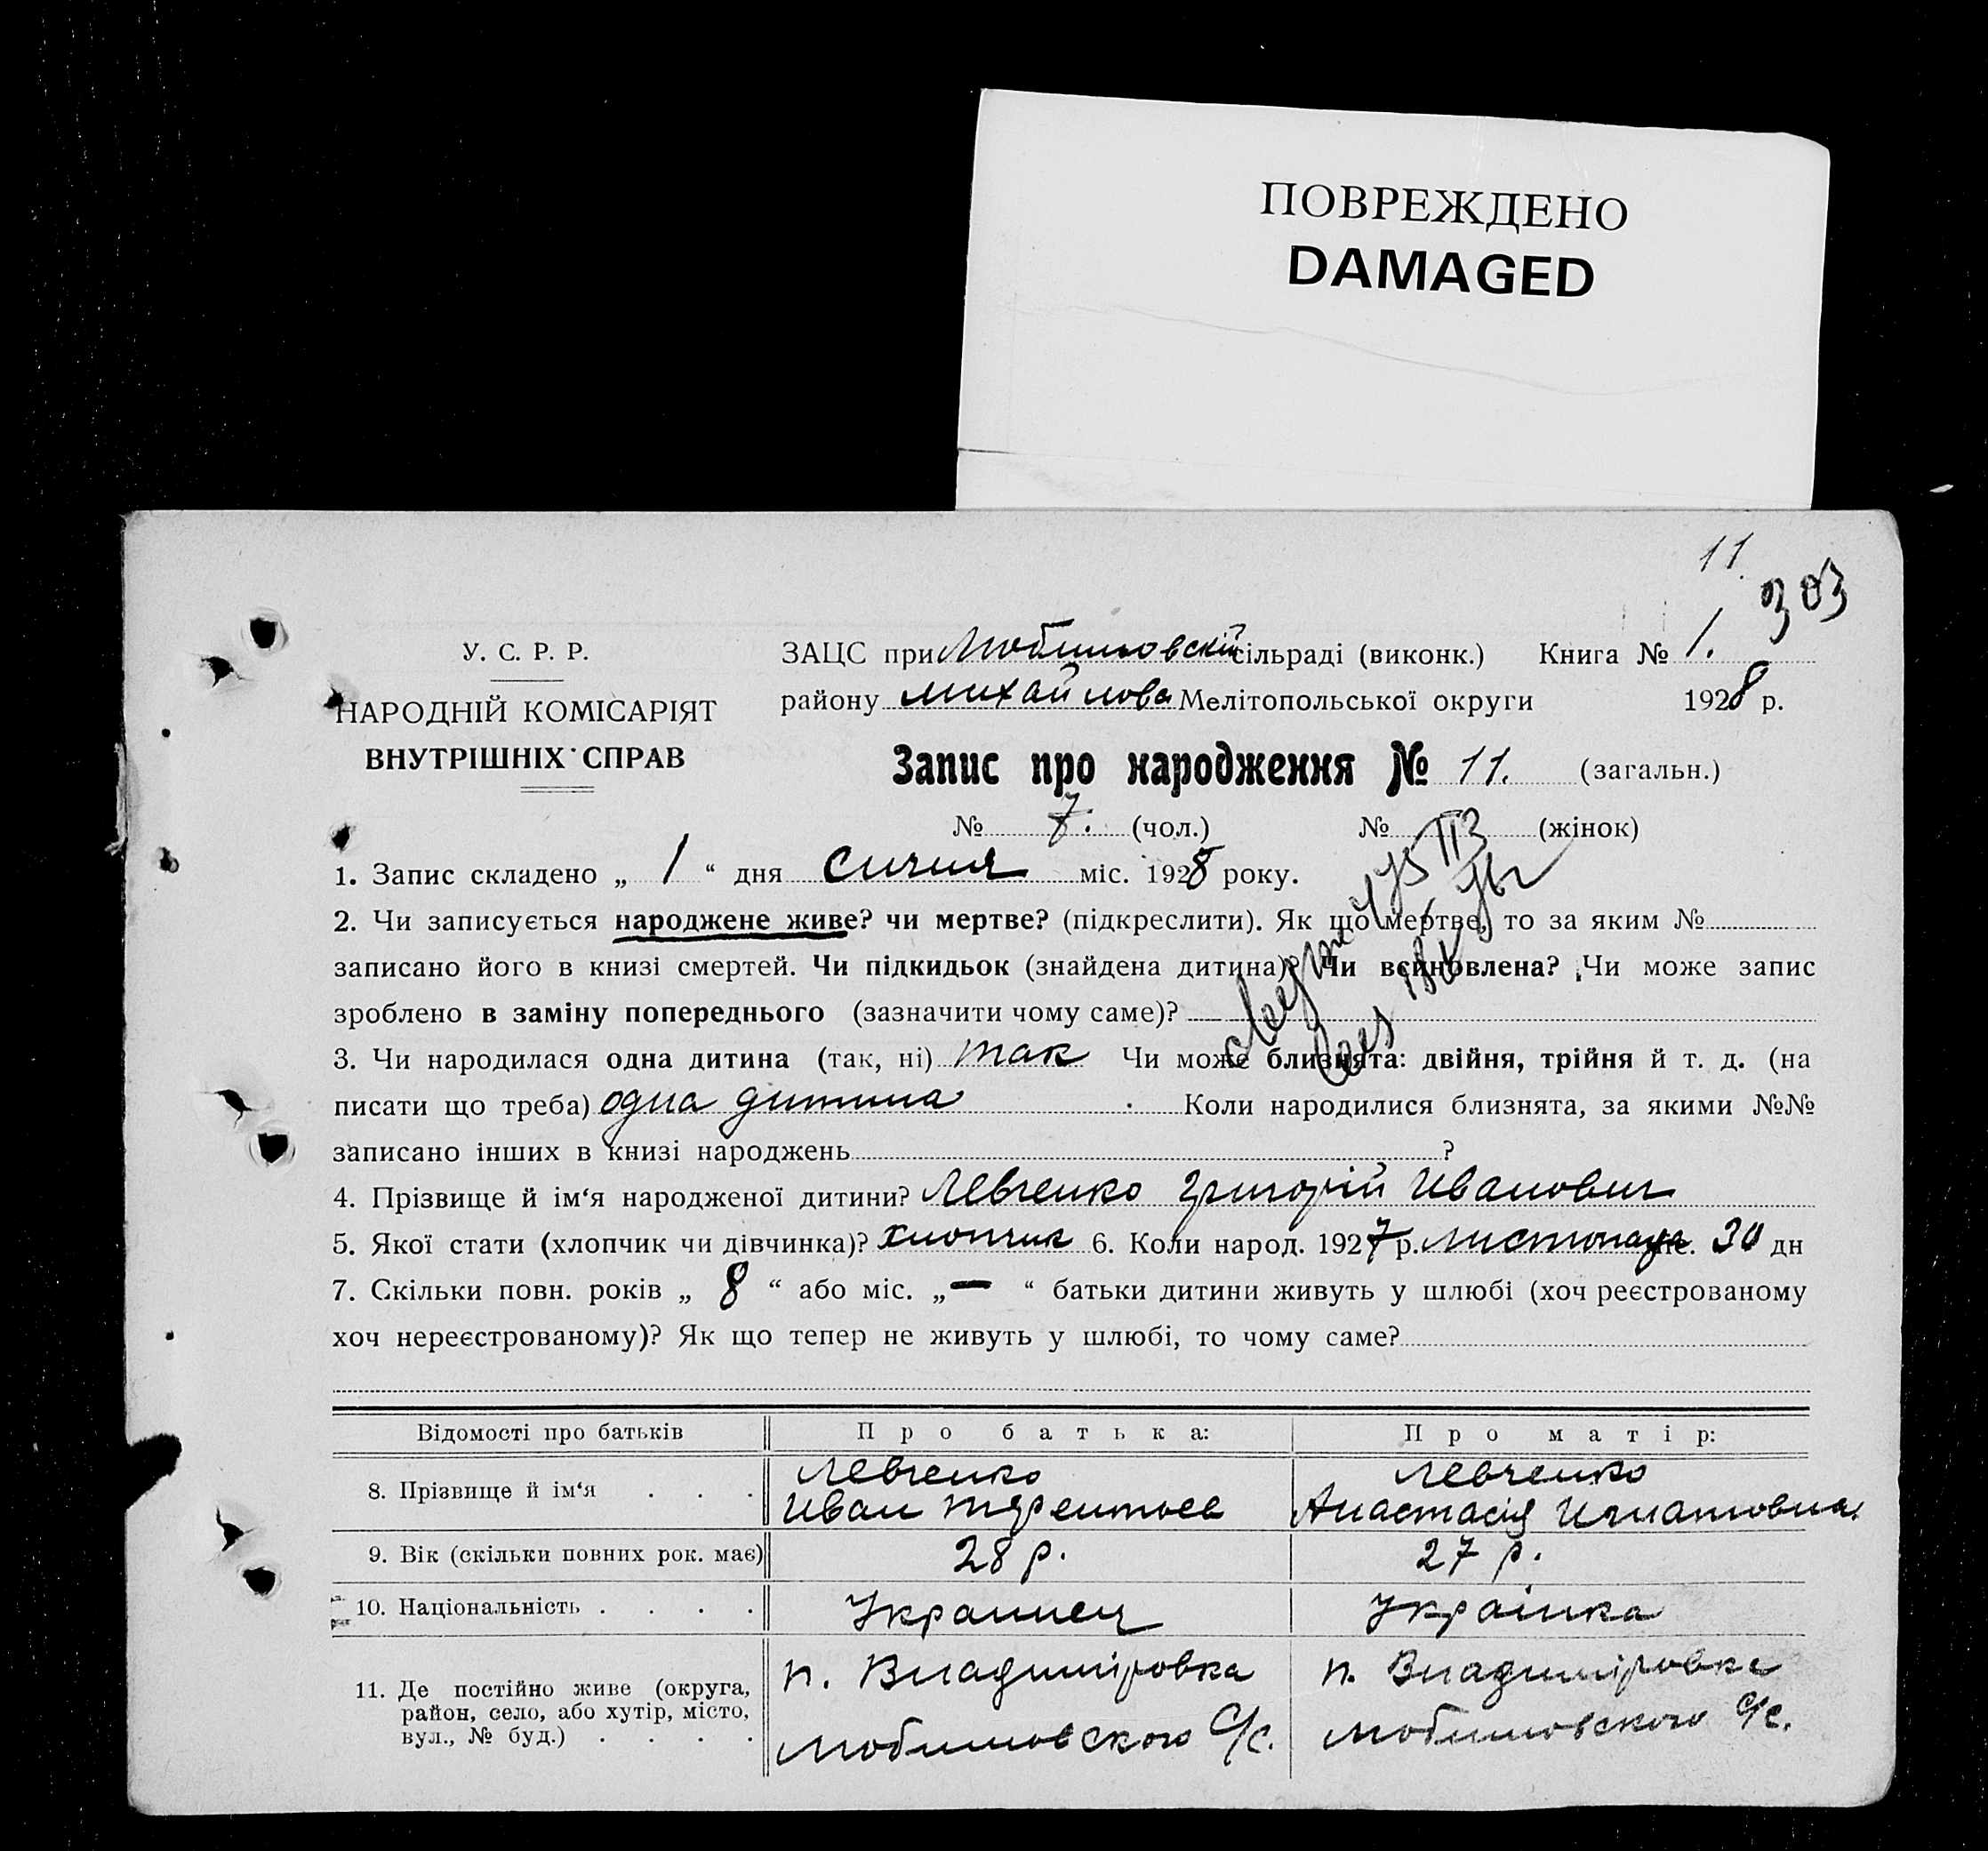 ПОВРЕЖДЕНО
DAMAGED
11.
303
У. С. Р. Р.
НАРОДНІЙ КОМІСАРІЯТ
ВНУТРІШНІХ СПРАВ
ЗАЦС при Любимовскій сільраді (виконк.) Книга № 1.
району Михайлова Мелітопольської округи 1928 р.
Запис про народження № 11. (загальн.)
№ 7. (чол.) № (жінок)
1. Запис складено „ 1 “ дня Сичня міс. 1928 року.
2. Чи записується народжене живе? чи мертве? (підкреслити). Як що мертве, то за яким №
записано його в книзі смертей. Чи підкидьок (знайдена дитина)? Чи всиновлена? Чи може запис
зроблено в заміну попереднього (зазначити чому саме)?
3. Чи народилася одна дитина (так, ні) так Чи може близнята: двійня, трійня й т. д. (на
писати що треба) одна дитина Коли народилися близнята, за якими №№
записано інших в книзі народжень ?
4. Прізвище й ім‘я народженої дитини? Левченко Григорій Иванович
5. Якої стати (хлопчик чи дівчинка)? хлопчик 6. Коли народ. 1927 р. листопада міс. 30 дн
7. Скільки повн. років „ 8 “ або міс. „ — “ батьки дитини живуть у шлюбі (хоч реєстрованому
хоч нереєстрованому)? Як що тепер не живуть у шлюбі, то чому саме?
Відомості про батьків Про батька: Про матір:
8. Прізвище й ім‘я . . . Левченко Иван Терентьев Левченко Анастасія Игнатовна.
9. Вік (скільки повних рок. має) 28 р. 27 р.
10. Національність . . . . Украинец Українка
11. Де постійно живе (округа,
район, село, або хутір, місто,
вул., № буд.) . . . .
п. Владиміровка
Любимовского С/с.
п. Владиміровка
Любимовского С/с.